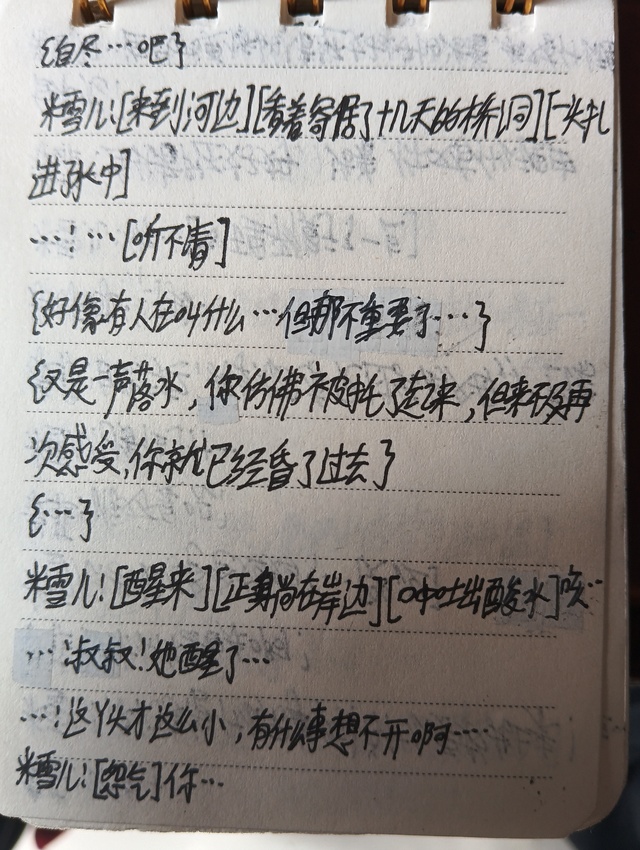 {自尽…吧}
米雪儿:[来到河边][看着寄居了十几天的桥洞][一头扎
进水中]
…:…[听不清]
{好像有人在叫什么…但那不重要了…}
{又是一声落水，你仿佛被托了起来，但来不及再
次感受，你就已经昏了过去}
{…}
米雪儿:[醒来][正身尚在岸边][口中吐出酸水]咳…
…:叔叔!她醒了…
…:这丫头才这么小，有什么事想不开啊……
米雪儿:[怨气]你…